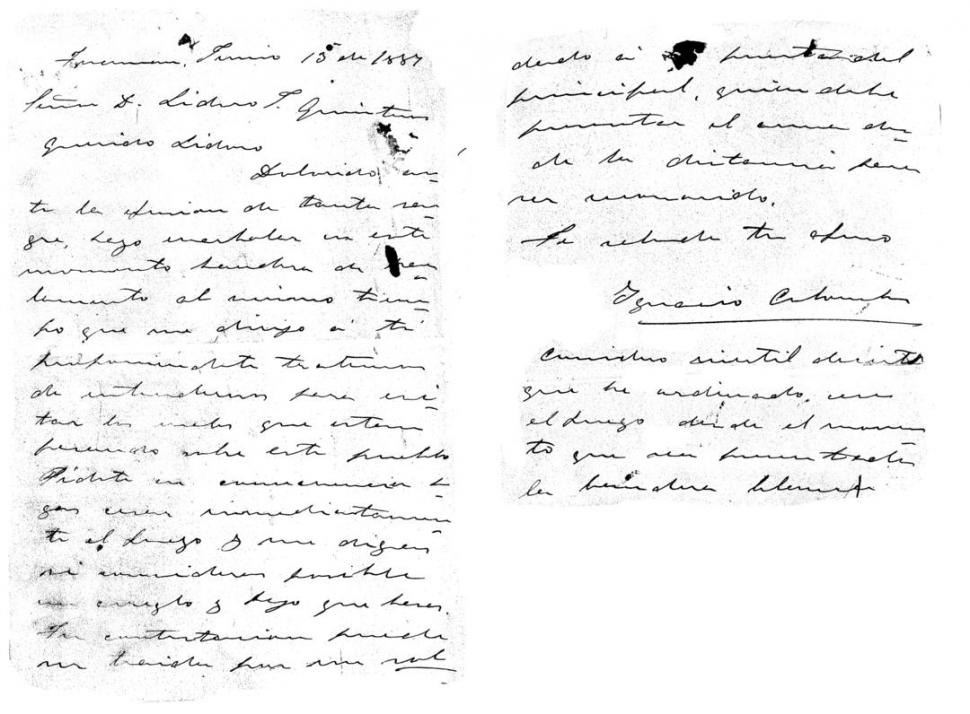 Tucuman, Junio 15 de 1887
Señor D. Lidoro J. Quinteros
Querido Lidoro
Dolorido an-
te la efusion de tanta san-
gre, hago enarbolar en este
momento bandera de par-
lamento al mismo tiem-
po que me dirijo á ti
proponiendote tratemos
de entendernos para evi-
tar los males que estan
pesando sobre este pueblo
Pidote en consecuencia h-
gas cesar inmediatamen-
te el fuego y me digas
si consideras posible
un arreglo y bajo que bases.
Tu contestacion puede
ser traida por un sol
dado á puerta del
principal, quien debe
presentar el arma des-
de la distancia para
ser reconocido.
Te saluda tu afmo
Ignacio Colombres
Considero inutil decirte
que he ordenado, cese
el fuego desde el momen
to que sea presentada
la bandera blanca